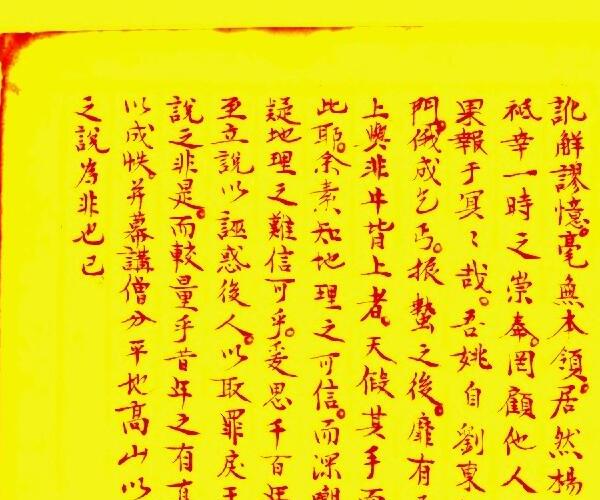 訛解謬憶。毫無本領。居然楊
祗幸一時之崇奉。罔顧他人
果報于冥〻哉。吾姚自劉東
門。俄成乞丐。振蟄之後。靡有
上與非廾皆上者。天假其手而
此耶。余素知地理之可信。而深嘲
疑地理之難信可乎。爰思千百年
至立說以誣惑後人。以取罪戾于
說之非是。而較量乎昔年之有
以成帙。并募講僧分平地高山以
之說為非也已